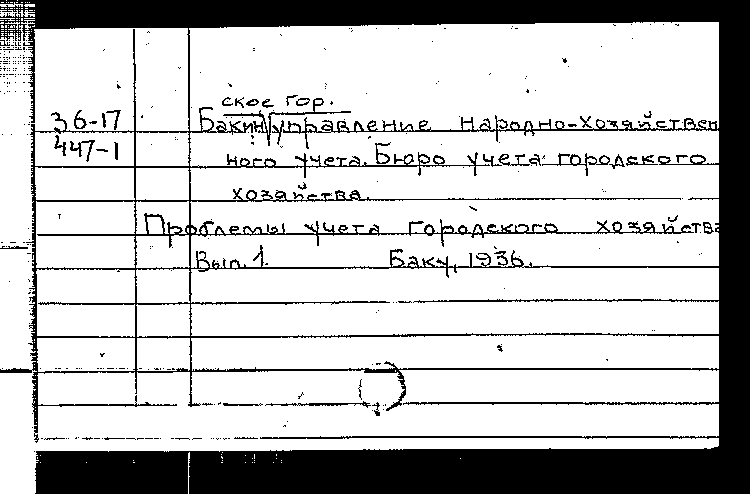 ское гор.
36-17 Бакин управление Народно-Хозяйствен
447-1 ного учета. Бюро учета городского
хозяйства.
Проблемы учета Городского хозяйства
Вып. 1. Баку, 1936.